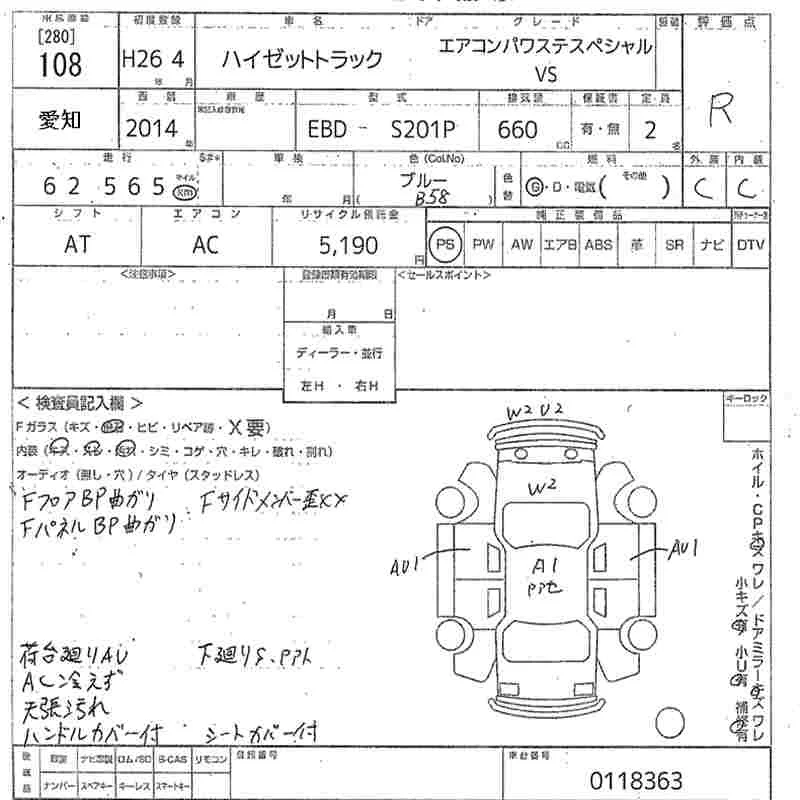 初度登録 車名 ドア グレード 評価点
[280]
108 H26 4 ハイゼットトラック エアコンパワステスペシャル
年 月 VS
R
車歴 型式 排気量 保証書 定員
愛知 2014 年 EBD - S201P 660 CC 有・無 2 名
走行 車検 色(Col.No) 燃料 外装 内装
62565 マイル km 年 月 ブルー 色替 G・D・電気( その他 ) C C
( B58 )
シフト エアコン リサイクル預託金 純正装備品
AT AC 5,190 円 PS PW AW エアB ABS 革 SR ナビ DTV
<注意事項> <セールスポイント>
月 日
輸入車
ディーラー・並行
左H ・ 右H
<検査員記入欄> キーロック
Fガラス(キズ・ ・ヒビ・リペア跡・X要)
内装(キズ・ ・ ・シミ・コゲ・穴・キレ・破れ・割れ)
オーディオ(無し・穴)/タイヤ(スタッドレス)
FフロアBP曲ガリ Fサイドメンバー歪XX
FパネルBP曲ガリ
W2 U2
W2
AU1 A1 AU1
PPセ
ホイル・CPキズワレ/ドアミラーキズワレ
小キズ有 小U有 補修有
荷台廻りAU 下廻りS.PPT
AC冷えず
天張汚れ
ハンドルカバー付 シートカバー付
後送品 取説 ナビ取説 ロム/SD B-CAS リモコン 登録番号 車台番号
ナンバー スペアキー キーレス スマートキー 0118363